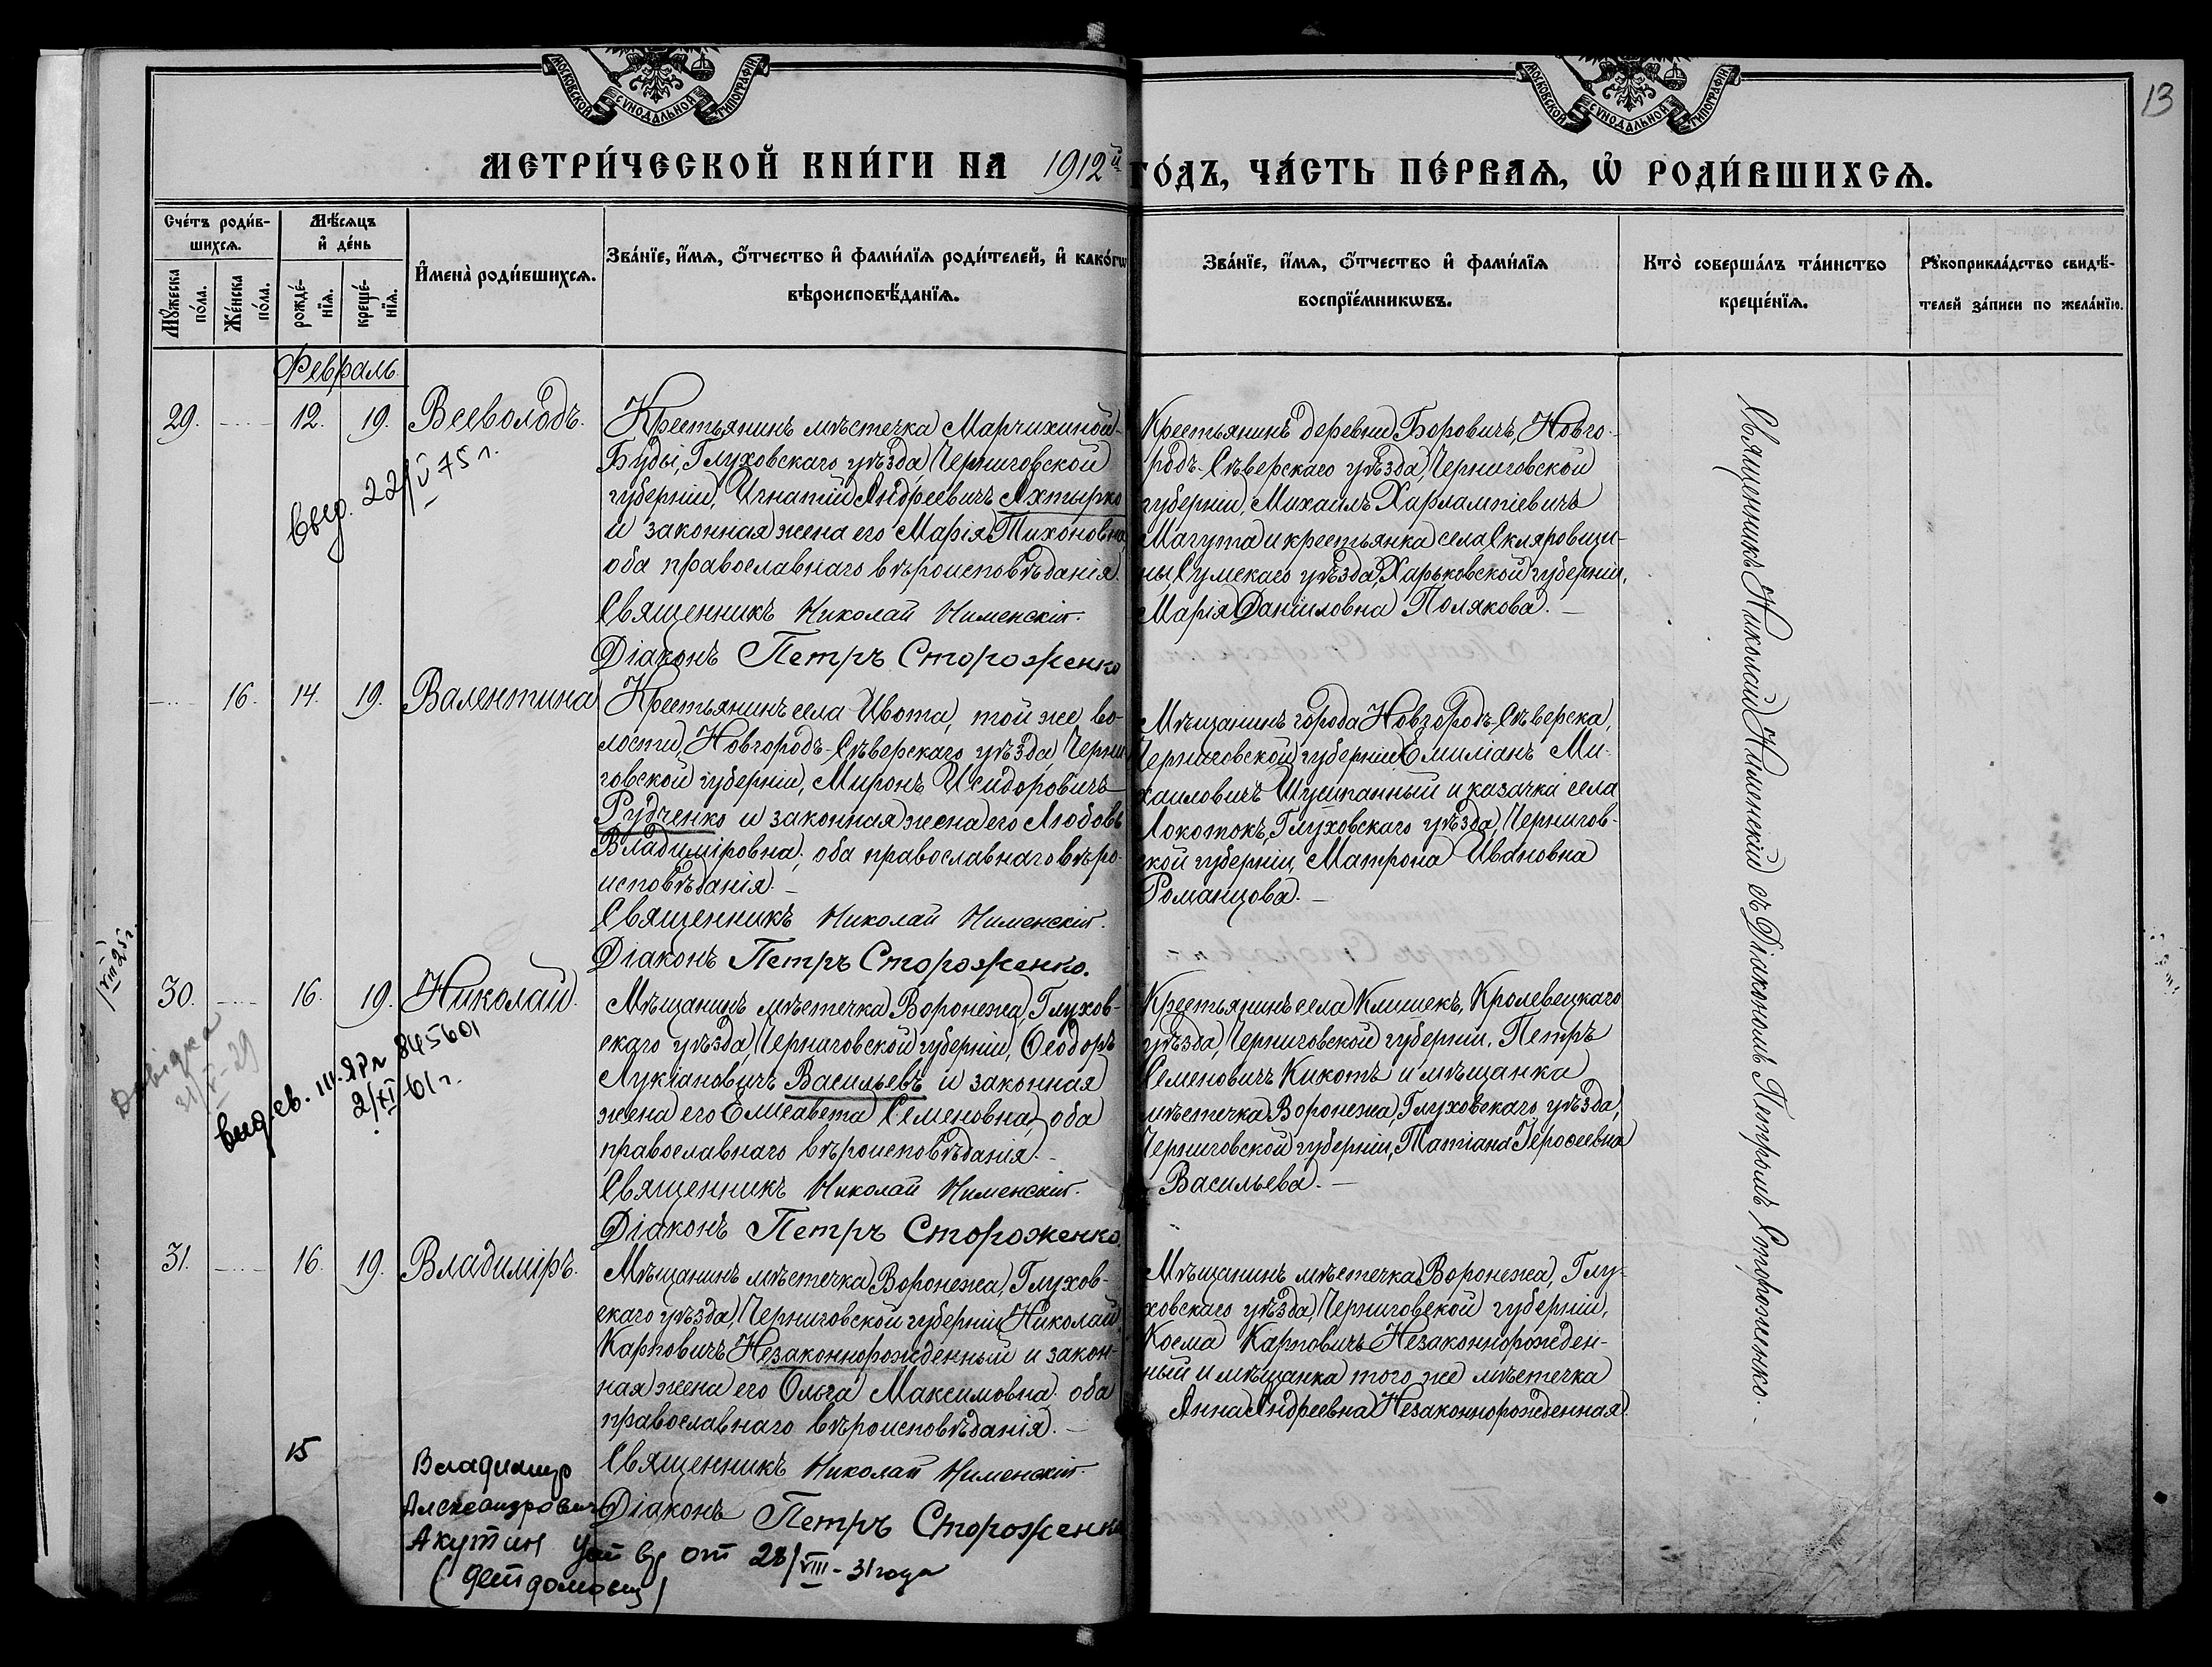 13
МОСКОВСКОЙ СѴНОДАЛЬНОЙ ТИПОГРАФІИ
МОСКОВСКОЙ СѴНОДАЛЬНОЙ ТИПОГРАФІИ
МЕТРИ́ЧЕСКОЙ КНИ́ГИ НА 1912й ГО́ДЪ, ЧА́СТЬ ПЕ́РВАѦ, Ѡ РОДИ́ВШИХСѦ.
Сче́тъ роди́в-
шихсѧ.
Мꙋ́жеска
по́ла.
Же́нска
по́ла.
Мѣ́сѧцъ
и҆ де́нь
рожде́-
нїѧ.
креще́-
нїѧ.
И҆мена̀ роди́вшихсѧ.
Зва́нїе, и҆́мѧ, ѻ҆́тчество и҆ фами́лїѧ роди́телей, и҆ како́гѡ
вѣроисповѣ́данїѧ.
Зва́нїе, и҆́мѧ, ѻ҆́тчество и҆ фами́лїѧ
воспрїе́мникѡвъ.
Кто̀ соверша́лъ та́инство
креще́нїѧ.
Рꙋкоприкла́дство свидѣ́-
телей за́писи по жела́нїю.
Февраль.
29.
12.
19.
Всеволодъ.
выд. 22/V 75 г.
Крестьянинъ мѣстечка Марчихиной-
Буды, Глуховскаго уѣзда, Черниговской
губерніи, Игнатій Андреевичъ Ахтырко
и законная жена его Марія Тихоновна,
оба православнаго вѣроисповѣданія.
Священникъ Николай Нименскій.
Діаконъ Петръ Стороженко
Крестьянинъ деревни Боровичъ, Новго-
родъ-Сѣверскаго уѣзда, Черниговской
губерніи, Михаилъ Харлампіевичъ
Магута и крестьянка села Скляровщи-
ны, Сумскаго уѣзда, Харьковской губерніи,
Марія Даниловна Полякова. —
16.
14.
19.
Валентина
Крестьянинъ села Ивота, той же во-
лости, Новгородъ-Сѣверскаго уѣзда, Черни-
говской губерніи, Миронъ Исидоровичъ
Рудченко и законная жена его Любовь
Владиміровна; оба православнаго вѣро-
исповѣданія. —
Священникъ Николай Нименскій.
Діаконъ Петръ Стороженко.
Мѣщанинъ города Новгородъ-Сѣверска,
Черниговской губерніи Емиліанъ Ми-
хаиловичъ и казачка села
Локотокъ, Глуховскаго уѣзда, Чернигов-
ской губерніи, Матрона Ивановна
Романцова. —
30.
16.
19.
Николай.
VIII 25 г.
Довідка
31/V-29
выд. св. 845601
2/XI-61 г.
Мѣщанинъ мѣстечка Воронежа, Глухов-
скаго уѣзда, Черниговской губерніи, Ѳеодоръ
Лукіановичъ Васильевъ и законная
жена его Елисавета Семеновна, оба
православнаго вѣроисповѣданія. —
Священникъ Николай Нименскій.
Діаконъ Петръ Стороженко.
Крестьянинъ села Клишекъ, Кролевецкаго
уѣзда, Черниговской губерніи, Петръ
Семеновичъ Кикоть и мѣщанка
мѣстечка Воронежа, Глуховскаго уѣзда,
Черниговской губерніи, Татіана Героѳеевна
Васильева. —
31.
16.
19.
Владиміръ.
Мѣщанинъ мѣстечка Воронежа, Глухов-
скаго уѣзда, Черниговской губерніи, Николай
Карповичъ Незаконнорожденный и закон-
ная жена его Ольга Максимовна; оба
православнаго вѣроисповѣданія. —
Священникъ Николай Нименскій.
Діаконъ Петръ Стороженко
Мѣщанинъ мѣстечка Воронежа, Глу-
ховскаго уѣзда, Черниговской губерніи,
Косма Карповичъ Незаконнорожден-
ный и мѣщанка того же мѣстечка
Анна Андреевна Незаконнорожденная.
15
Владимир
Александрович
Акутин от 28/VIII-31 года
(детдомовец)
Священникъ Николай Нименскій съ Діакономъ Петромъ Стороженко.